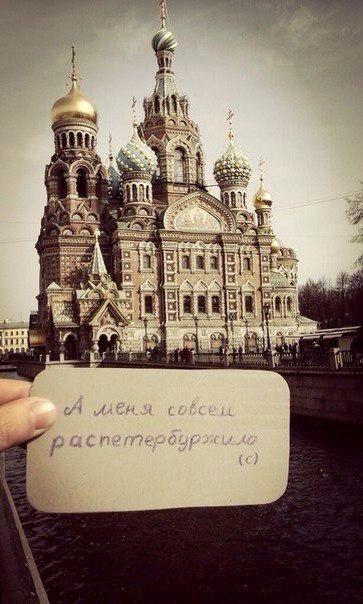 А меня совсем
распетербуржило
(с)